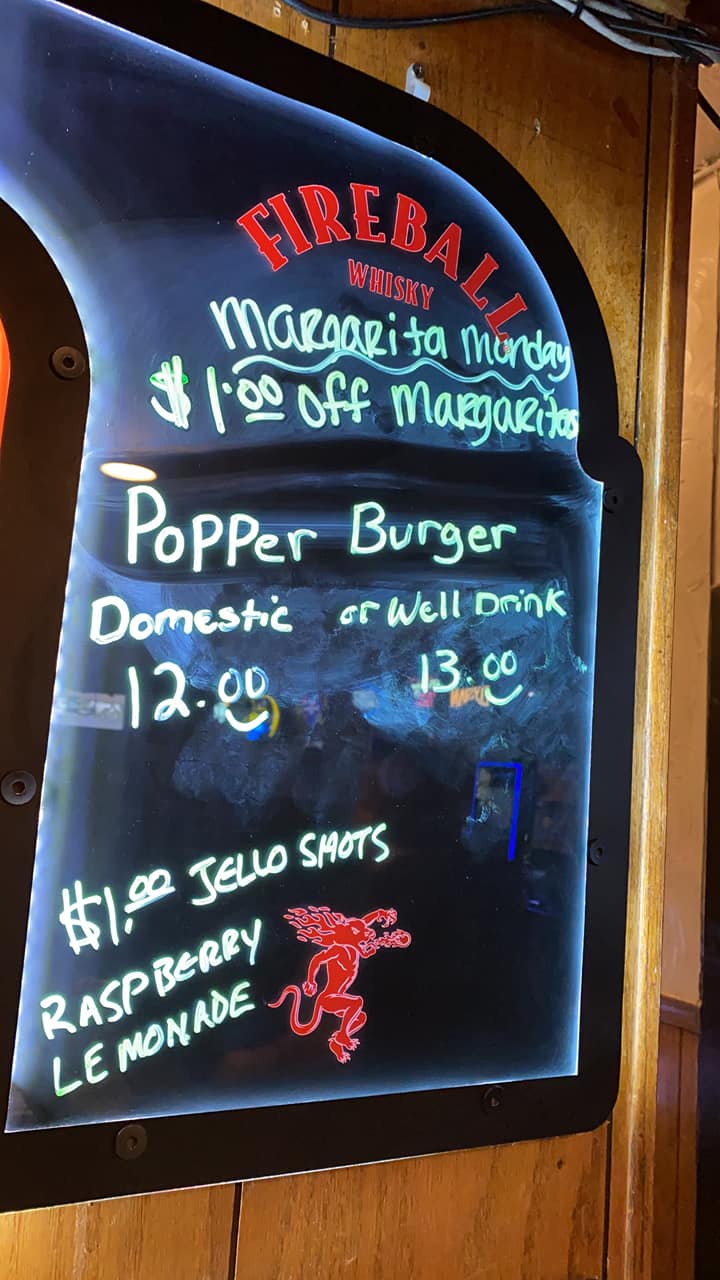 FIREBALL
WHISKY
Margarita Monday
$1.00 off Margaritas
Popper Burger
Domestic or Well Drink
12.00 13.00
$1.00 JELLO SHOTS
RASPBERRY
LEMONADE